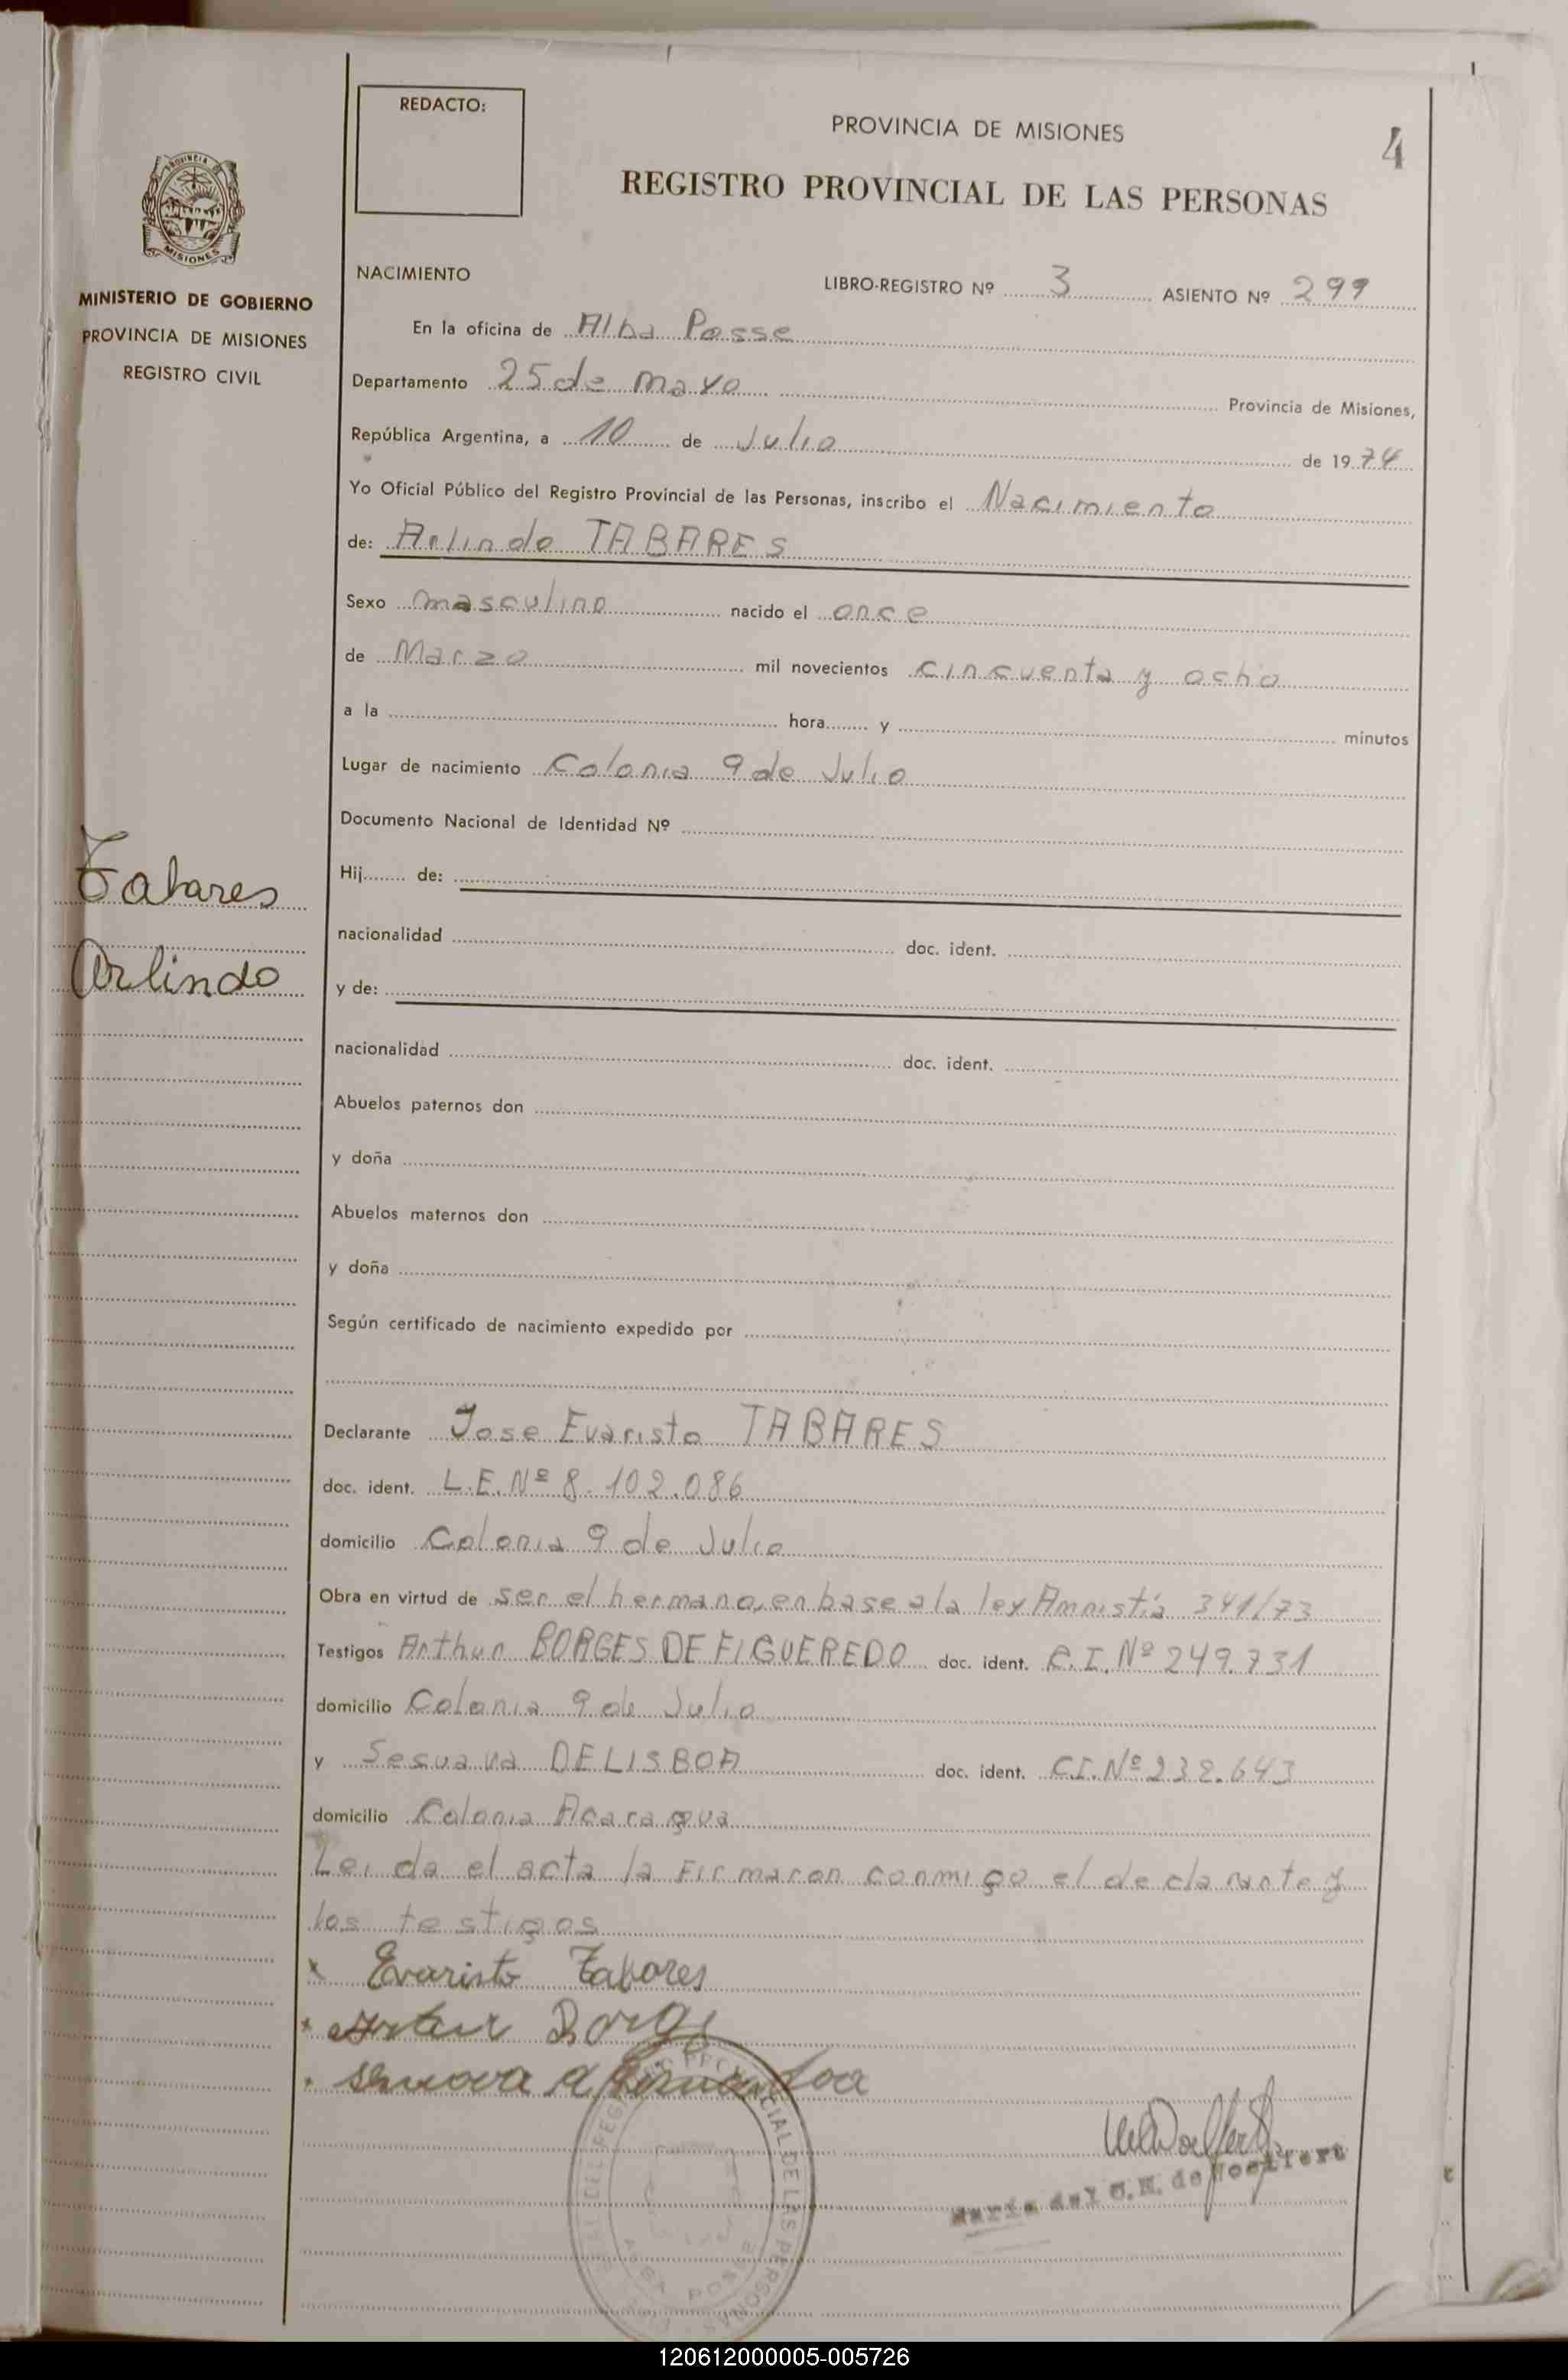 REDACTO:
PROVINCIA DE MISIONES
4
REGISTRO PROVINCIAL DE LAS PERSONAS
PROVINCIA
MISIONES
MINISTERIO DE GOBIERNO
PROVINCIA DE MISIONES
REGISTRO CIVIL
NACIMIENTO LIBRO-REGISTRO Nº 3 ASIENTO Nº 299
En la oficina de Alba Posse
Departamento 25 de mayo Provincia de Misiones,
República Argentina, a 10 de Julio de 1974
Yo Oficial Público del Registro Provincial de las Personas, inscribo el Nacimiento
de: Arlindo TABARES
Sexo masculino nacido el once
de Marzo mil novecientos cincuenta y ocho
a la hora y minutos
Lugar de nacimiento Colonia 9 de Julio
Documento Nacional de Identidad Nº
Hij de:
Tabares
nacionalidad doc. ident.
Arlindo
y de:
nacionalidad doc. ident.
Abuelos paternos don
y doña
Abuelos maternos don
y doña
Según certificado de nacimiento expedido por
Declarante Jose Evaristo TABARES
doc. ident. L.E. Nº 8.102.086
domicilio Colonia 9 de Julio
Obra en virtud de ser el hermano, en base a la ley Amnistía 341/73
Testigos Arthur BORGES DE FIGUEREDO doc. ident. C.I. Nº 249.731
domicilio Colonia 9 de Julio
y DE LISBOA doc. ident. C.I. Nº 232.643
domicilio Colonia Acaragua
Leida el acta la Firmaron conmigo el declarante y
los testigos
x Evaristo Tabares
DEL REGISTRO PROVINCIAL DE LAS PERSONAS
ALBA POSSE
120612000005-005726